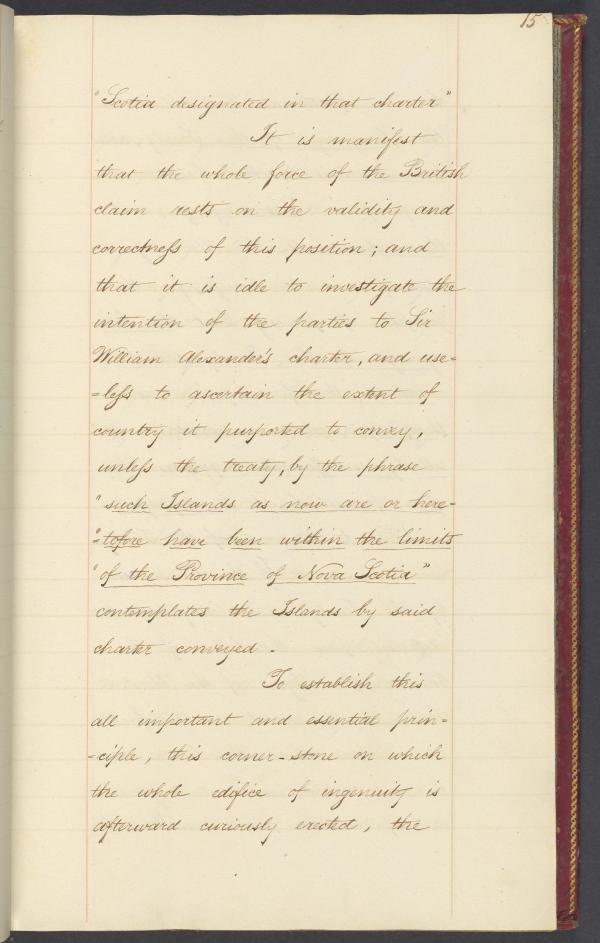 15
"Scotia designated in that charter"
It is manifest
that the whole force of the British
claim rests on the validity and
correctness of this position; and
that it is idle to investigate the
intention of the parties to Sir
William Alexander's charter, and use=
=less to ascertain the extent of
country it purported to convey,
unless the treaty, by the phrase
"such Islands as now are or here-
"=tofore have been within the limits
"of the Province of Nova Scotia"
contemplates the Islands by said
charter conveyed.
To establish this
all important and essential prin=
=ciple, this corner-stone on which
the whole edifice of ingenuity is
afterward curiously erected, the